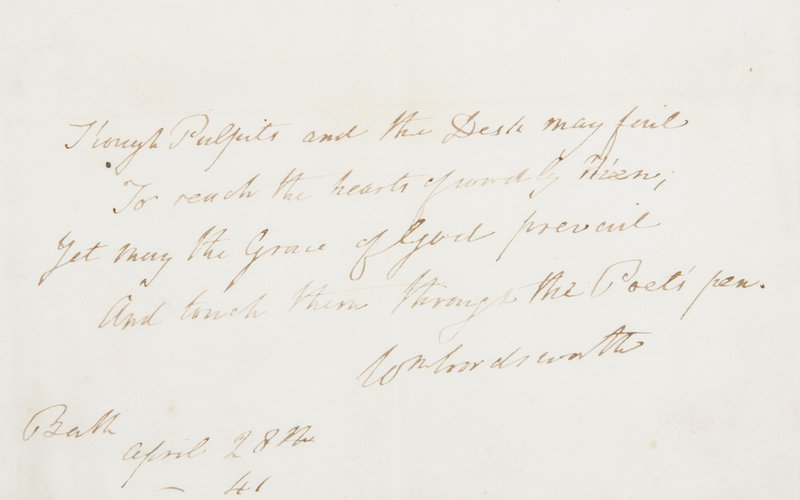 Though Pulpits and the Desk may fail
To reach the hearts of worldly men;
Yet may the Grace of God prevail
And touch them through the Poet's pen.
Wm Wordsworth
Bath
April 28th
– 41